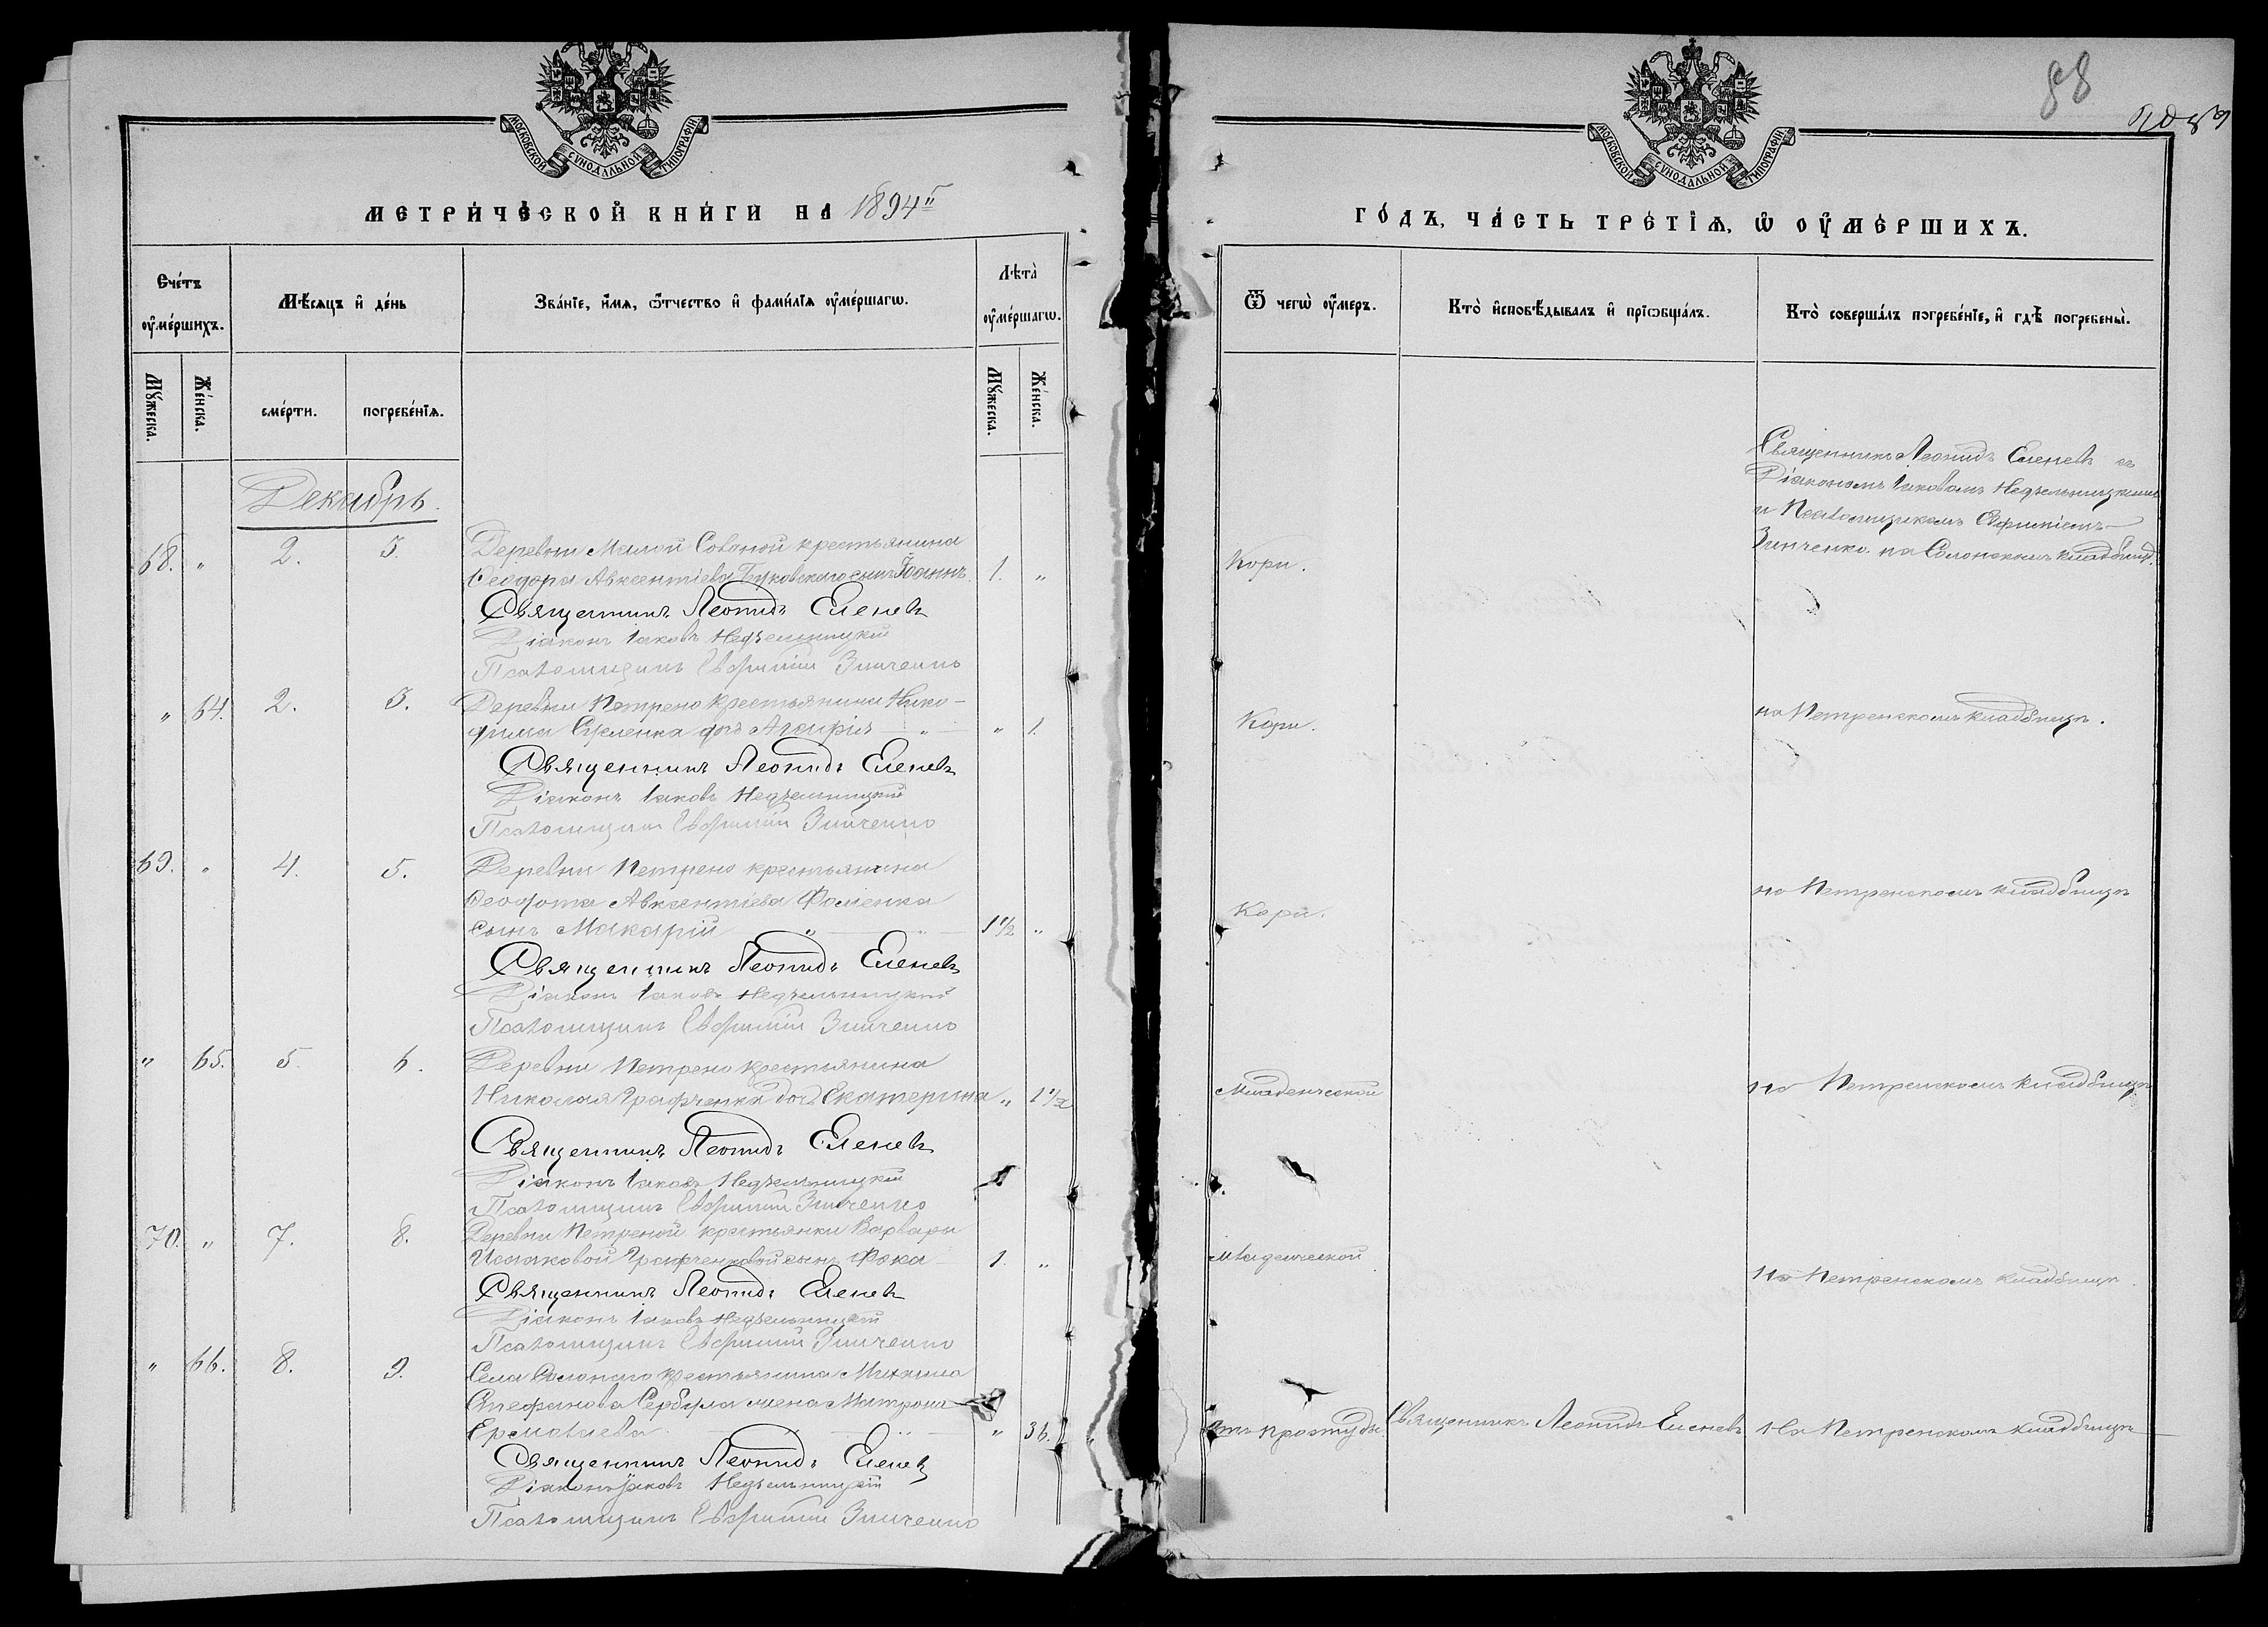 МОСКОВСКОЙ СУНОДАЛЬНОЙ ТИПОГРАФІИ
МЕТРИЧЕСКОЙ КНИГИ НА 1894й
Счетъ умершихъ.
Мѣсяцъ и день
Званіе, имя, отчество и фамилія умершагѡ.
Лѣта умершагѡ.
Мужеска.
Женска.
смерти.
погребенія.
Мужеска.
Женска.
Декабрь.
68. " 2. 3. Деревни Малой крестьянина
Ѳеодора Авксентіева Буковскаго сынъ Іоаннъ. 1. "
Священникъ Леонидъ Еленевъ
Діаконъ Іаковъ Недзельницкій
Псаломщикъ Евфимій Зинченко
" 64. 2. 3. Деревни Петрено крестьянина Нико-
дима дочь Агафія " " 1.
Священникъ Леонидъ Еленевъ
Діаконъ Іаковъ Недзельницкій
Псаломщикъ Евфимій Зинченко
69. " 4. 5. Деревни Петрено крестьянина
Ѳеодота Авксентіева Фоменка
сынъ Макарій " " 1 1/2 "
Священникъ Леонидъ Еленевъ
Діаконъ Іаковъ Недзельницкій
Псаломщикъ Евфимій Зинченко
" 65. 5. 6. Деревни Петрено крестьянина
Николая Графченка дочь Екатерина " 1 1/2
Священникъ Леонидъ Еленевъ
Діаконъ Іаковъ Недзельницкій
Псаломщикъ Евфимій Зинченко
70. " 7. 8. Деревни Петреной крестьянки Варвары
Исааковой Графченковой сынъ Фока 1. "
Священникъ Леонидъ Еленевъ
Діаконъ Іаковъ Недзельницкій
Псаломщикъ Евфимій Зинченко
" 66. 8. 9. Села Солонаго крестьянина Михаила
Стефанова Сербула жена Матрона
" 36.
Священникъ Леонидъ Еленевъ
Діаконъ Іаковъ Недзельницкій
Псаломщикъ Евфимій Зинченко
88
МОСКОВСКОЙ СУНОДАЛЬНОЙ ТИПОГРАФІИ
ГОДЪ, ЧАСТЬ ТРЕТІЯ, Ѡ УМЕРШИХЪ.
Ѿ чегѡ умеръ.
Кто исповѣдывалъ и пріобщалъ.
Кто совершалъ погребеніе, и гдѣ погребены.
Священникъ Леонидъ Еленевъ съ
Діакономъ Іаковомъ Недзельницкимъ
и Псаломщикомъ Евфиміемъ
Кори. Зинченко. на Солонскомъ кладбищѣ.
Кори. на Петренскомъ кладбищѣ.
Кори. на Петренскомъ кладбищѣ
Младенческой на Петренскомъ кладбищѣ
Младенческой На Петренскомъ кладбищѣ.
отъ простуды. Священникъ Леонидъ Еленевъ На Петренскомъ кладбищѣ